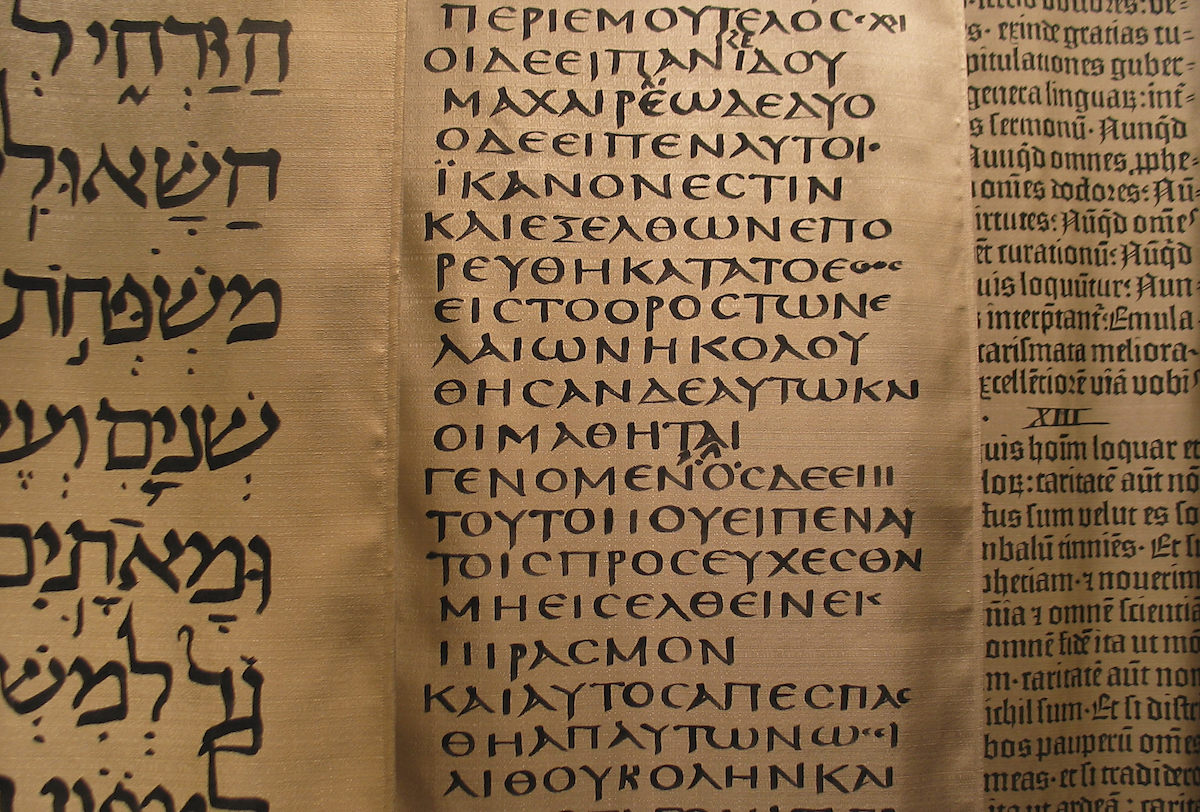 הַזַּרְחִ֑י לְ
הַשָּׁאוּלִ
מִשְׁפְּחֹת
שְׁנַיִם וְעֶ
וּמָאתָיִם
לְמִשְׁ
ΠΕΡΙΕΜΟΥΤΕΛΟС·ΧΙ
ΟΙΔΕΕΙΠΑΝΪΔΟΥ
ΜΑΧΑΙΡΕΩΔΕΔΥΟ
ΟΔΕΕΙΠΕΝΑΥΤΟΙ·
ΪΚΑΝΟΝΕСΤΙΝ
ΚΑΙΕΞΕΛΘΩΝΕΠΟ
ΡΕΥΘΗΚΑΤΑΤΟΕΘΟС
ΕΙСΤΟΟΡΟСΤΩΝΕ
ΛΑΙΩΝΗΚΟΛΟΥ
ΘΗСΑΝΔΕΑΥΤΩΚΑΙ
ΟΙΜΑΘΗΤΑΙ
ΓΕΝΟΜΕΝΟСΔΕΕΠΙ
ΤΟΥΤΟΠΟΥΕΙΠΕΝΑΥ
ΤΟΙСΠΡΟСΕΥΧΕСΘΑΙ
ΜΗΕΙСΕΛΘΕΙΝΕΙС
ΠΙΡΑСΜΟΝ
ΚΑΙΑΥΤΟСΑΠΕСΠΑС
ΘΗΑΠΑΥΤΩΝΩСΕΙ
ΛΙΘΟΥΚΟΛΗΝΚΑΙ
s· exinde gratias cu-
pitulationes guber-
genera linguaꝝ: int-
s sermonū· Nunq̄d
Nunq̄d omnes ꝓphe-
omēs doctores: Nū
irtutes: Nūq̄d omē
ēt curationū: Nūq̄d
uis loquūtur: Nun
interp̄tant̄: Emula
carismata meliora·
excellētiorē viā vobis
XIII
uis hoīm loquar et
loꝝ: caritatē aūt nō
tus sum velut es so
mbalū tinniēs· Et si
phetiam· ⁊ nouerim
nīa ⁊ omnē scientiā
omnē fidē ita ut mō
m· caritatē aūt non
ichil sum· Et si distri
bos pauperū omēs
meas· et si tradidero